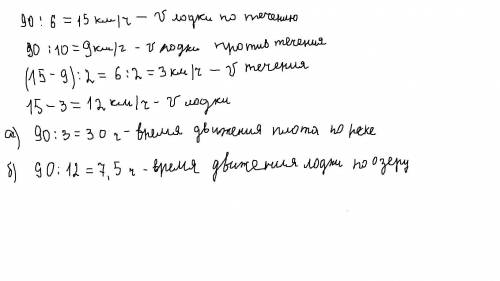 90 : 6 = 15 км/ч – v лодки по течению
90 : 10 = 9 км/ч - v лодки против течения
(15 - 9) : 2 = 6 : 2 = 3 км/ч – v течения
15 - 3 = 12 км/ч - v лодки
а) 90 : 3 = 30 ч - время движения плота по реке
б) 90 : 12 = 7,5 ч - время движения лодки по озеру